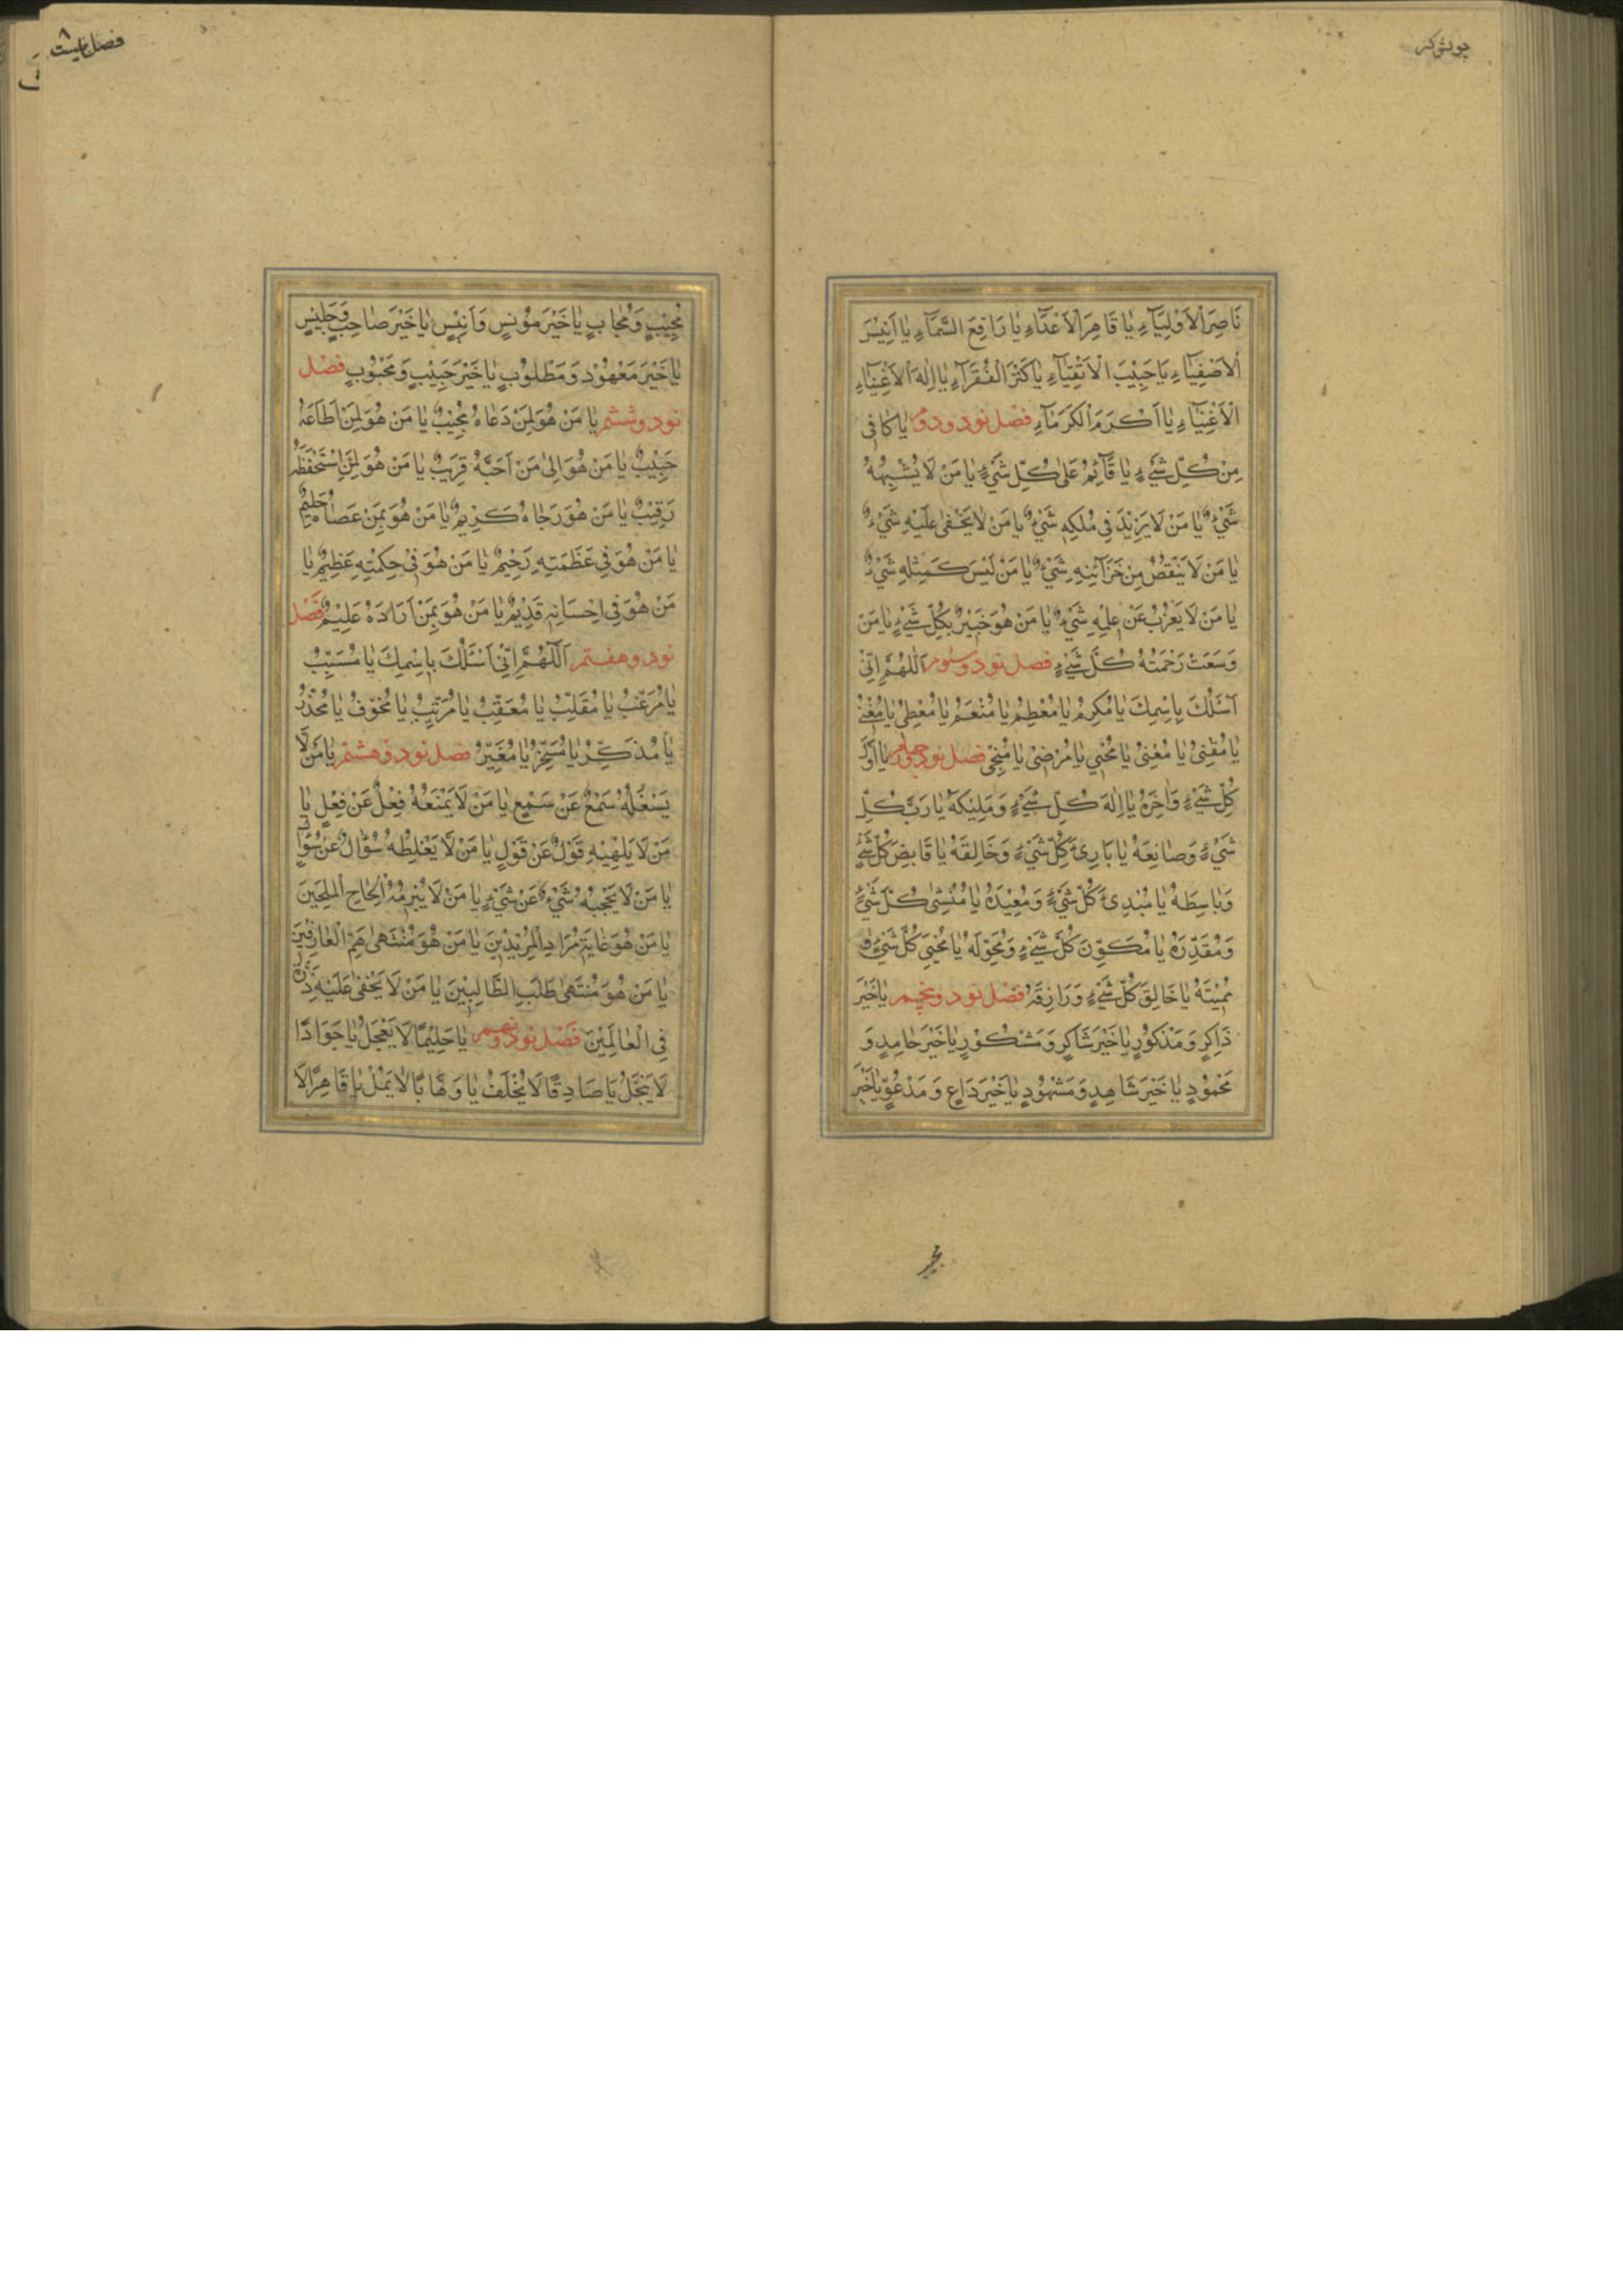 جوشن کبیر
نَاصِرَ الْاَوْلِيَآءِ يَا قَاهِرَ الْاَعْدَآءِ يَا رَافِعَ السَّمَآءِ يَا اَنِيْسَ
الْاَصْفِيَآءِ يَا حَبِيْبَ الْاَتْقِيَآءِ يَا كَنْزَ الْفُقَرَآءِ يَا اِلٰهَ الْاَغْنِيَآءِ
الْاَغْنِيَآءِ يَا اَكْرَمَ الْكَرَمَآءِ فصل نود و دوم يَا كَافِىْ
مِنْ كُلِّ شَىْءٍ يَا قَآئِمُ عَلٰى كُلِّ شَىْءٍ يَا مَنْ لَا يُشْبِهُهُ
شَىْءٌ يَا مَنْ لَا يَزِيْدُ فِى مُلْكِهِ شَىْءٌ يَا مَنْ لَا يَخْفٰى عَلَيْهِ شَىْءٌ
يَا مَنْ لَا يَنْقُصُ مِنْ خَزَآئِنِهِ شَىْءٌ يَا مَنْ لَيْسَ كَمِثْلِهِ شَىْءٌ
يَا مَنْ لَا يَعْزُبُ عَنْ عِلْمِهِ شَىْءٌ يَا مَنْ هُوَ خَبِيْرٌ بِكُلِّ شَىْءٍ يَا مَنْ
وَسِعَتْ رَحْمَتُهُ كُلَّ شَىْءٍ فصل نود و سوم اَللّٰهُمَّ اِنِّىْ
اَسْئَلُكَ بِاِسْمِكَ يَا مُكْرِمُ يَا مُعْطِمُ يَا مُنْعِمُ يَا مُعْطِىْ يَا مُغْنِىْ
يَا مُقْنِىْ يَا مُفْنِىْ يَا مُحْيِىْ يَا مُرْضِىْ يَا مُنْجِىْ فصل نود و چهارم يَا اَوَّلَ
كُلِّ شَىْءٍ وَاٰخِرَهُ يَا اِلٰهَ كُلِّ شَىْءٍ وَمَلِيْكَهُ يَا رَبَّ كُلِّ
شَىْءٍ وَصَانِعَهُ يَا بَارِئَ كُلِّ شَىْءٍ وَخَالِقَهُ يَا قَابِضَ كُلِّ شَىْءٍ
وَبَاسِطَهُ يَا مُبْدِئَ كُلِّ شَىْءٍ وَمُعِيْدَهُ يَا مُنْشِئَ كُلِّ شَىْءٍ
وَمُقَدِّرَهُ يَا مُكَوِّنَ كُلِّ شَىْءٍ وَمُحَوِّلَهُ يَا مُحْيِىَ كُلِّ شَىْءٍ وَ
مُمِيْتَهُ يَا خَالِقَ كُلِّ شَىْءٍ وَرَازِقَهُ فصل نود و پنجم يَا خَيْرَ
ذَاكِرٍ وَمَذْكُوْرٍ يَا خَيْرَ شَاكِرٍ وَمَشْكُوْرٍ يَا خَيْرَ حَامِدٍ وَ
مَحْمُوْدٍ يَا خَيْرَ شَاهِدٍ وَمَشْهُوْدٍ يَا خَيْرَ دَاعٍ وَمَدْعُوٍّ يَا خَيْرَ
مُجِيْبٍ وَمُجَابٍ يَا خَيْرَ مُوْنِسٍ وَاَنِيْسٍ يَا خَيْرَ صَاحِبٍ وَجَلِيْسٍ
يَا خَيْرَ مَعْهُوْدٍ وَمَطْلُوْبٍ يَا خَيْرَ حَبِيْبٍ وَمَحْبُوْبٍ فصل
نود و ششم يَا مَنْ هُوَ لِمَنْ دَعَاهُ مُجِيْبٌ يَا مَنْ هُوَ لِمَنْ اَطَاعَهُ
حَبِيْبٌ يَا مَنْ هُوَ اِلٰى مَنْ اَحَبَّهُ قَرِيْبٌ يَا مَنْ هُوَ لِمَنِ اسْتَحْفَظَهُ
رَقِيْبٌ يَا مَنْ هُوَ رَجَاهُ كَرِيْمٌ يَا مَنْ هُوَ بِمَنْ عَصَاهُ حَلِيْمٌ
يَا مَنْ هُوَ فِى عَظَمَتِهِ رَحِيْمٌ يَا مَنْ هُوَ فِىْ حِكْمَتِهِ عَظِيْمٌ يَا
مَنْ هُوَ فِى اِحْسَانِهِ قَدِيْمٌ يَا مَنْ هُوَ بِمَنْ اَرَادَهُ عَلِيْمٌ فصل
نود و هفتم اَللّٰهُمَّ اِنِّىْ اَسْئَلُكَ بِاِسْمِكَ يَا مُسَبِّبُ
يَا مُرَغِّبُ يَا مُقَلِّبُ يَا مُعَقِّبُ يَا مُرَتِّبُ يَا مُخَوِّفُ يَا مُحَذِّرُ
يَا مُذَكِّرُ يَا مُسَخِّرُ يَا مُغَيِّرُ فصل نود و هشتم يَا مَنْ لَا
يَشْغُلُهُ سَمْعٌ عَنْ سَمْعٍ يَا مَنْ لَا يَمْنَعُهُ فِعْلٌ عَنْ فِعْلٍ يَا
مَنْ لَا يُلْهِيْهِ قَوْلٌ عَنْ قَوْلٍ يَا مَنْ لَا يُغَلِّطُهُ سُؤَالٌ عَنْ سُؤَالٍ
يَا مَنْ لَا يَحْجُبُهُ شَىْءٌ عَنْ شَىْءٍ يَا مَنْ لَا يُبْرِمُهُ اِلْحَاحُ الْمُلِحِّيْنَ
يَا مَنْ هُوَ غَايَةُ مُرَادِ الْمُرِيْدِيْنَ يَا مَنْ هُوَ مُنْتَهٰى هِمَمِ الْعَارِفِيْنَ
يَا مَنْ هُوَ مُنْتَهٰى طَلَبِ الطَّالِبِيْنَ يَا مَنْ لَا يَخْفٰى عَلَيْهِ ذَرَّةٌ
فِى الْعَالَمِيْنَ فصل نود و نهم يَا حَلِيْمًا لَا يَعْجَلُ يَا جَوَادًا
لَا يَبْخَلُ يَا صَادِقًا لَا يُخْلِفُ يَا وَهَّابًا لَا يَمَلُّ يَا قَاهِرًا لَا